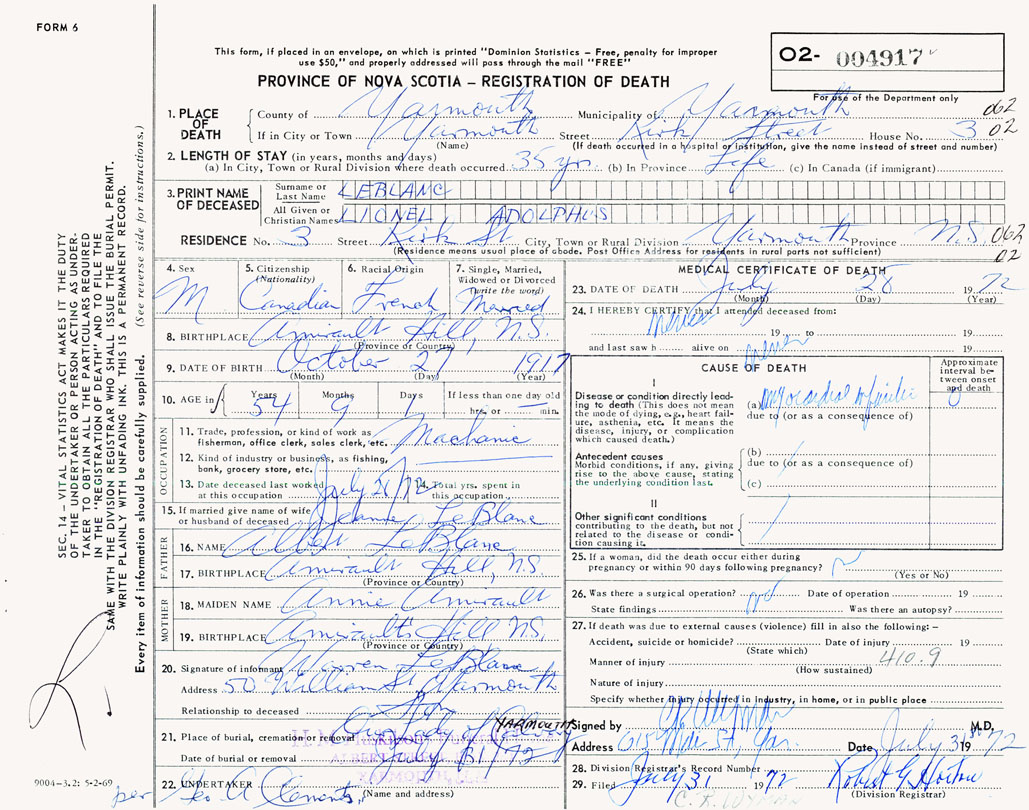 FORM 6
This form, if placed in an envelope, on which is printed "Dominion Statistics – Free, penalty for improper
use $50," and properly addressed will pass through the mail "FREE"
PROVINCE OF NOVA SCOTIA – REGISTRATION OF DEATH
O2- 004917
For use of the Department only
1. PLACE OF DEATH
County of Yarmouth Municipality of Yarmouth 062
If in City or Town Yarmouth Street Kirk Street House No. 3 02
(Name) (If death occurred in a hospital or institution, give the name instead of street and number)
2. LENGTH OF STAY (in years, months and days)
(a) In City, Town or Rural Division where death occurred 35 yrs. (b) In Province Life (c) In Canada (if immigrant)
3. PRINT NAME OF DECEASED
Surname or Last Name LEBLANC
All Given or Christian Names LIONEL ADOLPHUS
RESIDENCE No. 3 Street Kirk St City, Town or Rural Division Yarmouth Province N.S. 062
(Residence means usual place of abode. Post Office Address for residents in rural parts not sufficient) 02
4. Sex M
5. Citizenship (Nationality) Canadian
6. Racial Origin French
7. Single, Married, Widowed or Divorced (write the word) Married
8. BIRTHPLACE Amirault Hill, N.S.
(Province or Country)
9. DATE OF BIRTH October 27 1917
(Month) (Day) (Year)
10. AGE in Years 54 Months 9 Days 1 If less than one day old hrs. or min.
OCCUPATION
11. Trade, profession, or kind of work as fisherman, office clerk, sales clerk, etc. Machanic
12. Kind of industry or business, as fishing, bank, grocery store, etc.
13. Date deceased last worked at this occupation July 26/72 14. Total yrs. spent in this occupation
15. If married give name of wife or husband of deceased Jeanne LeBlanc
FATHER
16. NAME Albert LeBlanc
17. BIRTHPLACE Amirault Hill, N.S.
(Province or Country)
MOTHER
18. MAIDEN NAME Annie Amirault
19. BIRTHPLACE Amirault's Hill N.S.
(Province or Country)
20. Signature of informant Warren LeBlanc
Address 50 William St Yarmouth
Relationship to deceased Son
21. Place of burial, cremation or removal Our Lady of Calvary YARMOUTH
Date of burial or removal July 31/72
22. UNDERTAKER
(Name and address)
per Geo A Clements
MEDICAL CERTIFICATE OF DEATH
23. DATE OF DEATH July 28 1972
(Month) (Day) (Year)
24. I HEREBY CERTIFY that I attended deceased from:
19 to
and last saw h alive on 19
CAUSE OF DEATH
Approximate interval between onset and death
I
Disease or condition directly leading to death (This does not mean the mode of dying, e.g., heart failure, asthenia, etc. It means the disease, injury, or complication which caused death.)
(a) myocardial
due to (or as a consequence of)
Antecedent causes
Morbid conditions, if any, giving rise to the above cause, stating the underlying condition last.
(b)
due to (or as a consequence of)
(c)
II
Other significant conditions contributing to the death, but not related to the disease or condition causing it.
25. If a woman, did the death occur either during pregnancy or within 90 days following pregnancy?
(Yes or No)
26. Was there a surgical operation? no Date of operation 19
State findings Was there an autopsy?
27. If death was due to external causes (violence) fill in also the following: –
Accident, suicide or homicide? Date of injury 19
(State which)
Manner of injury 410.9
(How sustained)
Nature of injury
Specify whether injury occurred in industry, in home, or in public place
Signed by M.D.
Address Main St, Yar. Date July 31st 1972
28. Division Registrar's Record Number
29. Filed July 31 1972 Robert G. Horton
(Division Registrar)
C. K. WYMAN
SEC. 14 – VITAL STATISTICS ACT MAKES IT THE DUTY
OF THE UNDERTAKER OR PERSON ACTING AS UNDER-
TAKER TO OBTAIN ALL THE PARTICULARS REQUIRED
IN THE "REGISTRATION OF DEATH" AND TO FILE THE
SAME WITH THE DIVISION REGISTRAR WHO SHALL ISSUE THE BURIAL PERMIT.
WRITE PLAINLY WITH UNFADING INK. THIS IS A PERMANENT RECORD.
Every item of information should be carefully supplied. (See reverse side for instructions.)
9004-3.2: 5-2-69